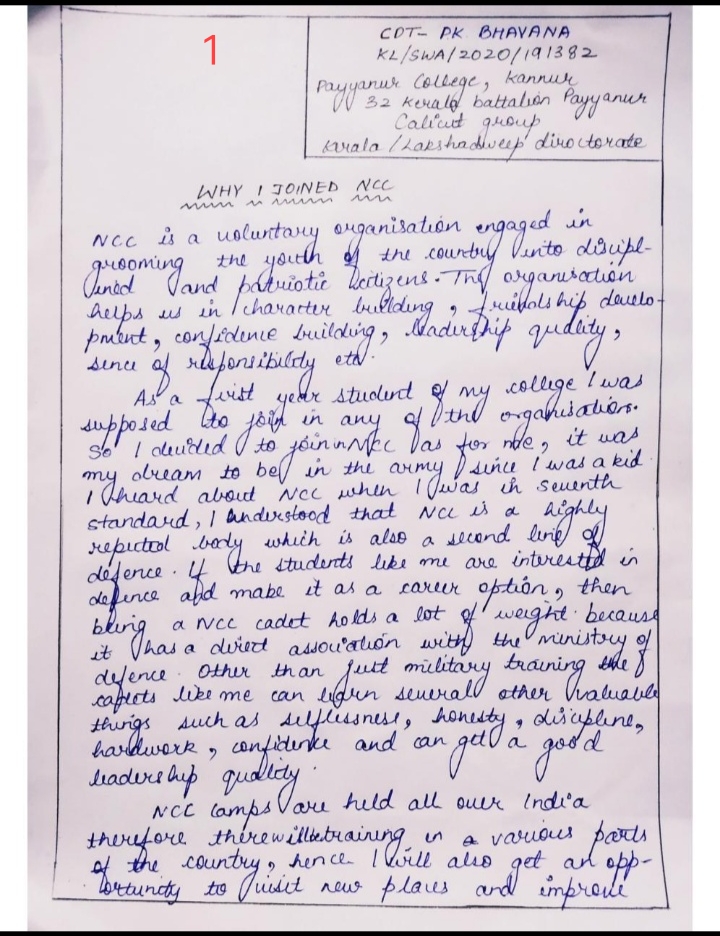 1
CDT- PK BHAVANA
KL/SWA/2020/191382
Payyanur College, Kannur
32 Kerala battalion Payyanur
Calicut group
Kerala / Lakshadweep diroctorate
WHY I JOINED NCC
NCC is a voluntary organisation engaged in
grooming the youth of the country into discipl-
ined and patriotic citizens. This organisation
helps us in character building, friendship develo-
pment, confidence building, leadership quality,
sence of responsibility etc.
As a first year student of my college I was
supposed to join in any of the organisation.
So I decided to join in NCC as for me, it was
my dream to be in the army since I was a kid
I heard about NCC when I was in seventh
standard, I understood that NCC is a highly
reputed body which is also a second line of
defence. If the students like me are interested in
defence and make it as a career option, then
being a NCC cadet holds a lot of weight because
it has a direct association with the ministry of
defence. Other than just military training the
cadets like me can learn several other valuable
things such as selflessness, honesty, discipline,
hardwork, confidence and can get a good
leadership quality.
NCC camps are held all over India
therefore there will be training in a various parts
of the country, hence I will also get an opp-
ortunity to visit new places and improve